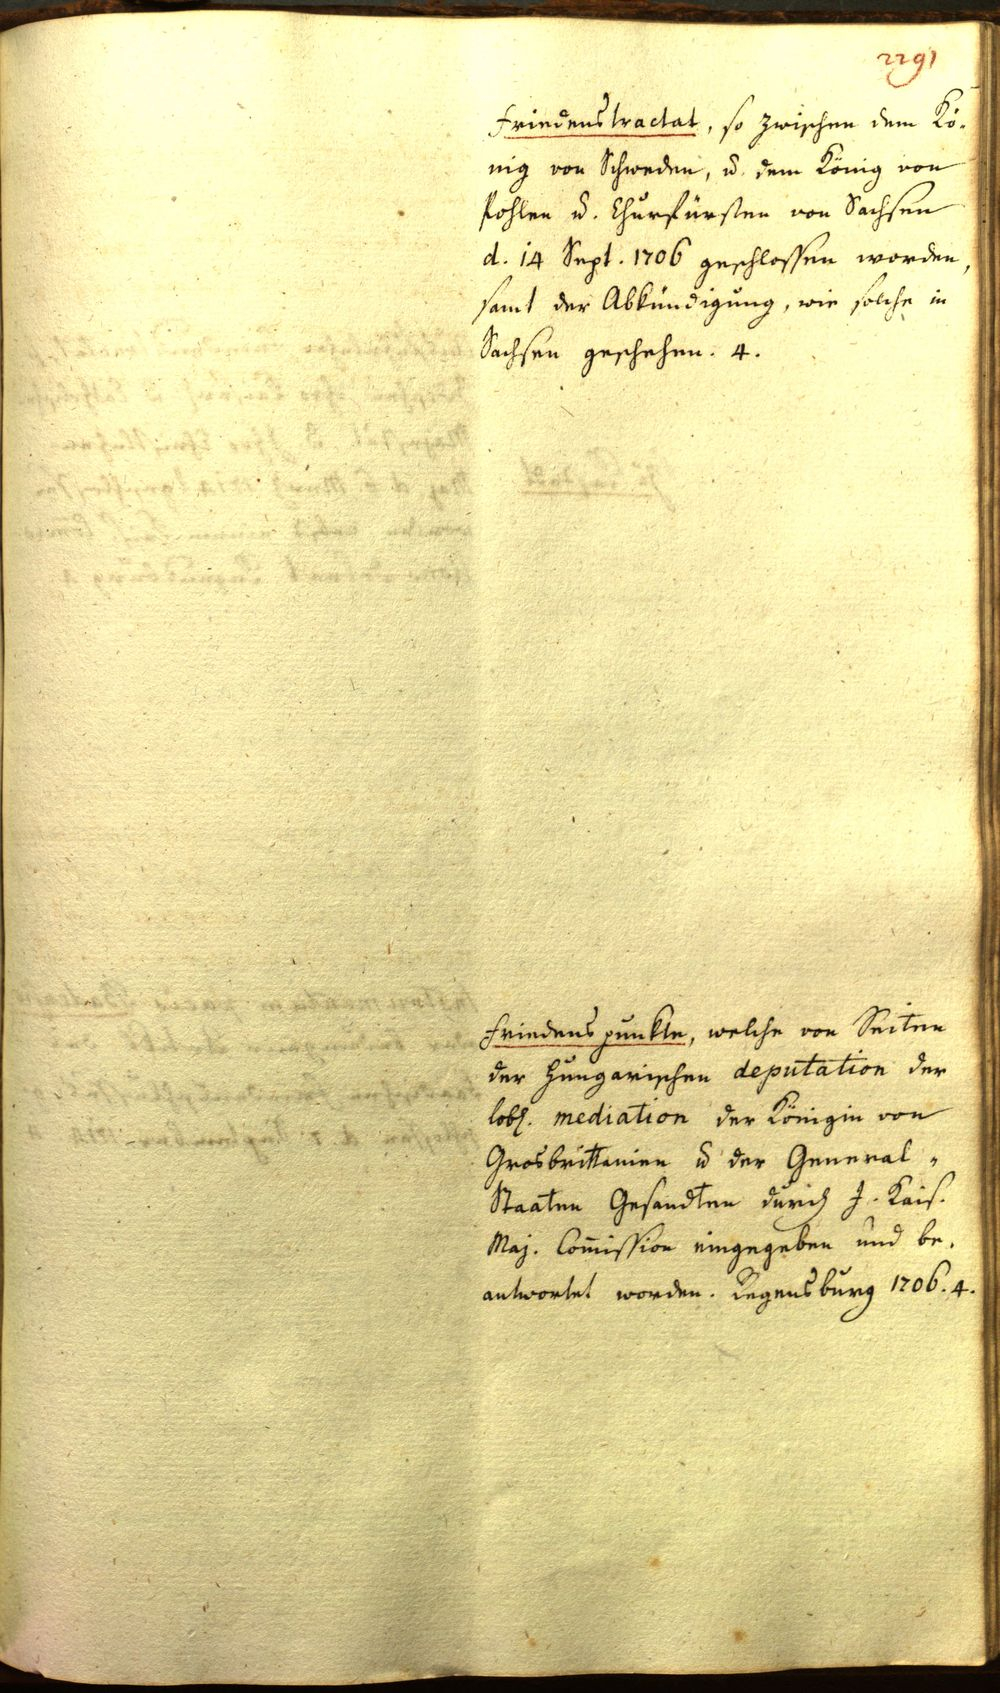 2291
Friedenstractat, so zwischen dem Kö-
nig von Schweden, u. dem König von
Pohlen u. Churfürsten von Sachsen
d. 14 Sept. 1706 geschlossen worden,
samt der Abkündigung, wie solche in
Sachsen geschehen. 4.
Friedenspunkte, welche von Seiten
der Hungarischen deputation der
lobl. mediation der Königin von
Grosbrittanien u der General-
Staaten Gesandten durch J. Kais.
Maj. Com̄ission eingegeben und be-
antwortet worden. Regensburg 1706. 4.